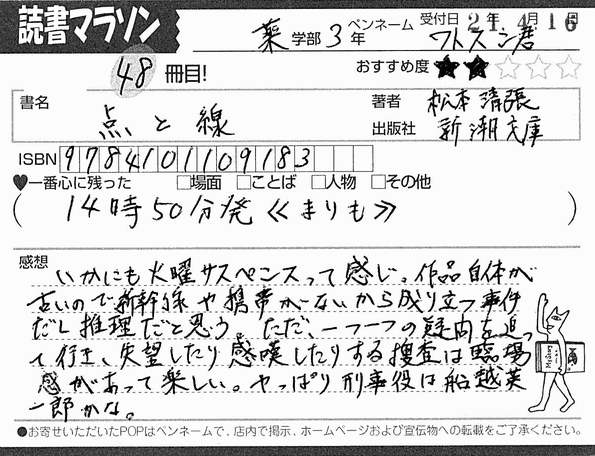 読書マラソン
薬 学部 3 年
ペンネーム ワトスン君
受付日 21年 4月 16日
48 冊目!
おすすめ度 ★★☆☆☆
書名 点と線
著者 松本清張
出版社 新潮文庫
ISBN 9784101109183
♥一番心に残った □場面 □ことば □人物 □その他
(14時50分発≪まりも≫)
感想
いかにも火曜サスペンスって感じ。作品自体が
古いので新幹線や携帯がないから成り立つ事件
だし推理だと思う。ただ、一つ一つの疑問を追っ
て行き、失望したり感嘆したりする捜査は臨場
感があって楽しい。やっぱり刑事役は船越英
一郎かな。
●お寄せいただいたPOPはペンネームで、店内で掲示、ホームページおよび宣伝物への転載をご了承ください。